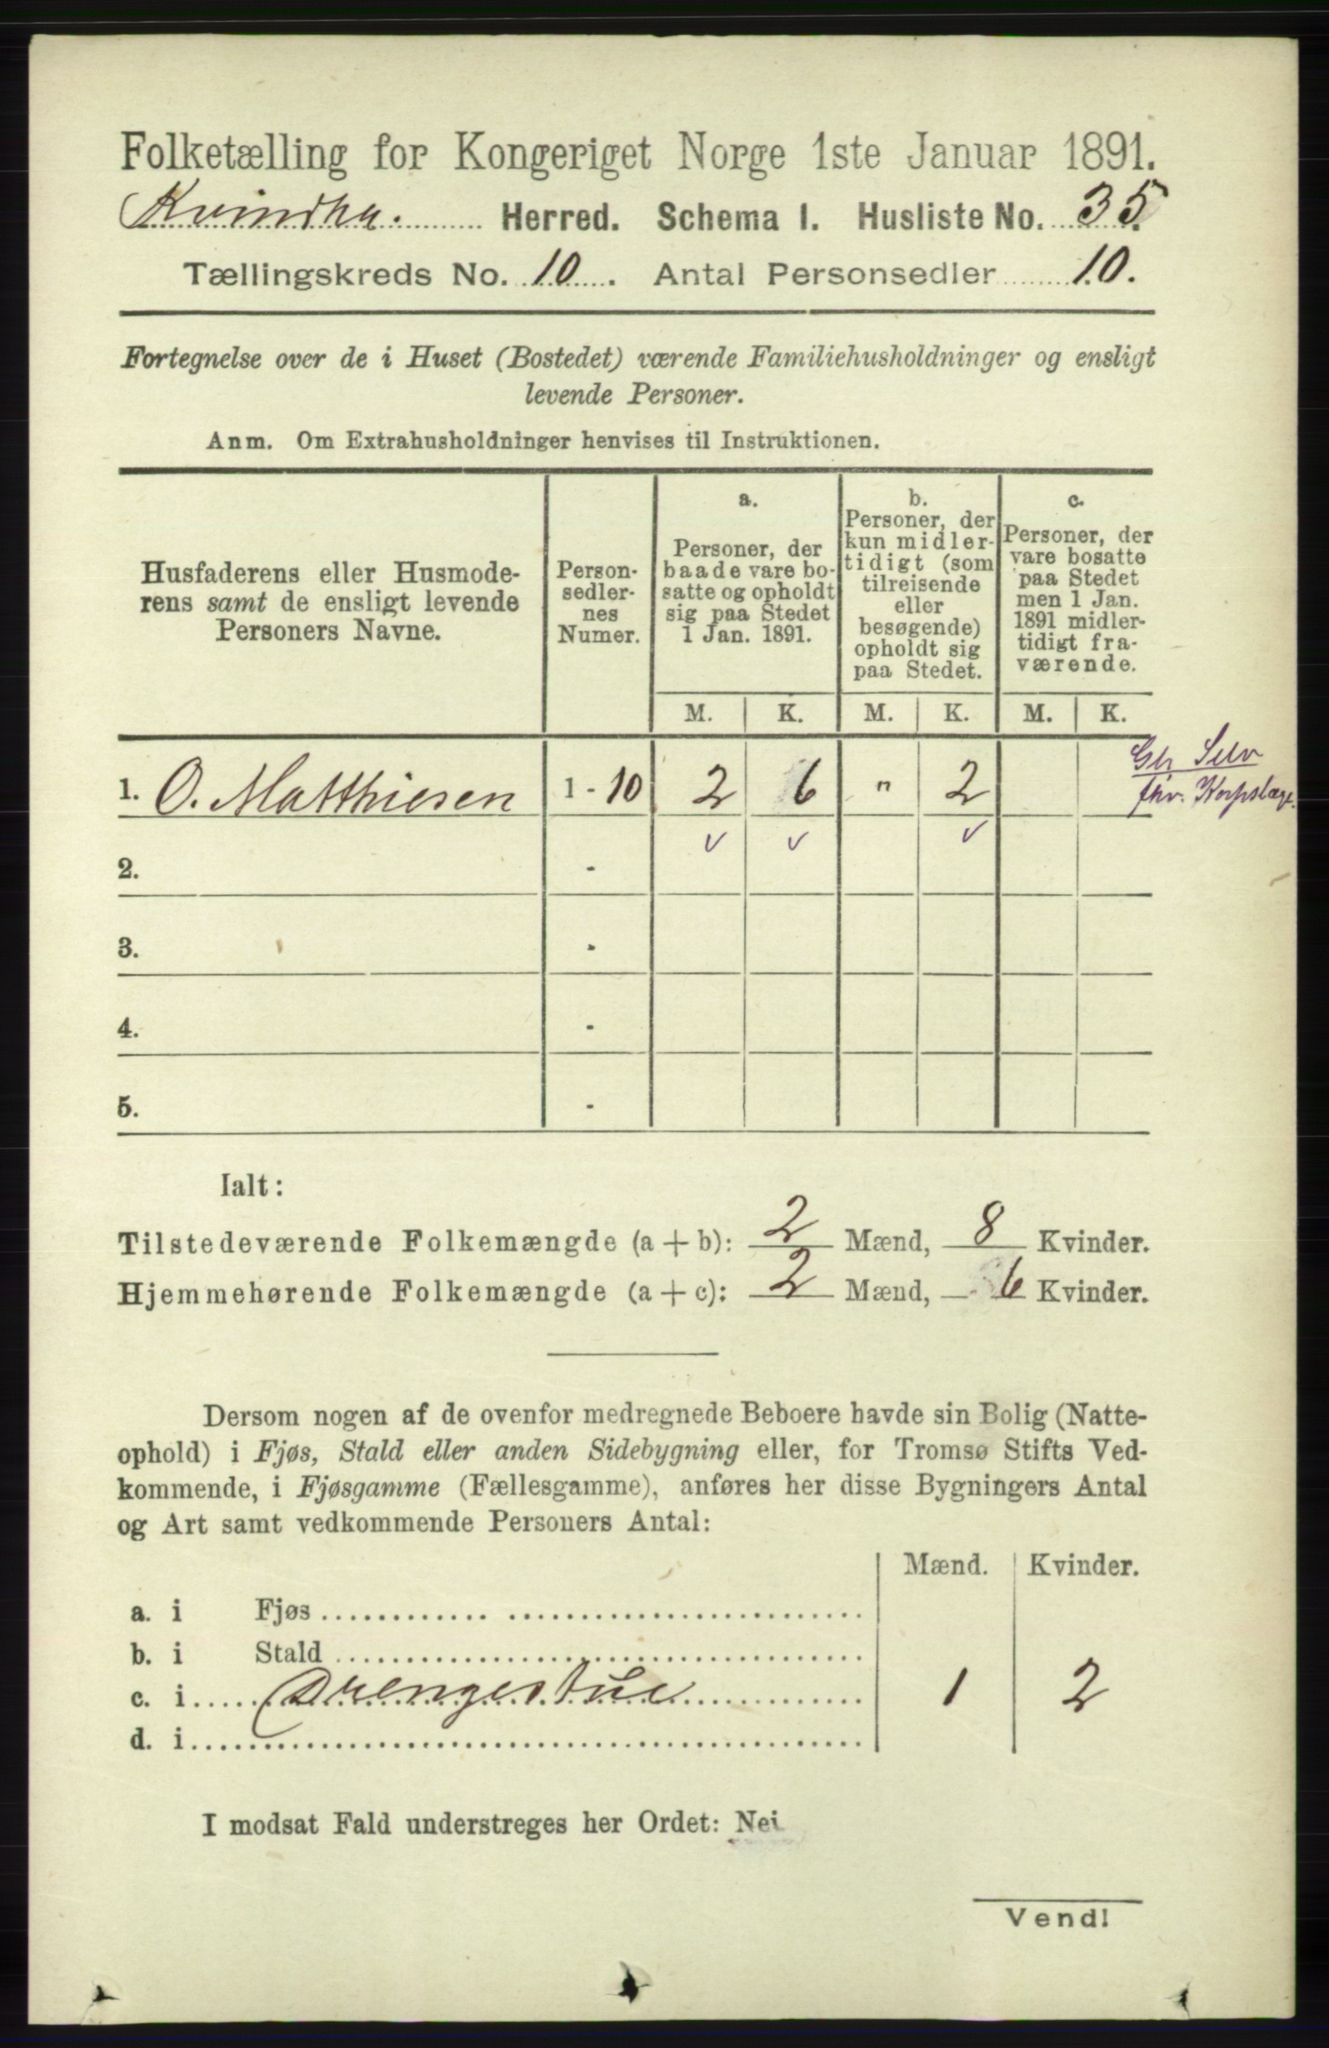 Folketælling for Kongeriget Norge 1ste Januar 1891.
Kvindhr. Herred. Schema 1. Husliste No. 35.
Tællingskreds No. 10. Antal Personsedler 10.
Fortegnelse over de i Huset (Bostedet) værende Familiehusholdninger og ensligt
levende Personer.
Anm. Om Extrahusholdninger henvises til Instruktionen.
Husfaderens eller Husmode-
rens samt de ensligt levende
Personers Navne.
Person-
sedler-
nes
Numer.
a.
Personer, der
baade vare bo-
satte og opholdt
sig paa Stedet
1 Jan. 1891.
b.
Personer, der
kun midler-
tidigt (som
tilreisende
eller
besøgende)
opholdt sig
paa Stedet.
c.
Personer, der
vare bosatte
paa Stedet
men 1 Jan.
1891 midler-
tidigt fra-
værende.
M. K. M. K. M. K.
1. O. Matthiesen 1 - 10 2 6 " 2
Selv
fhv. Korpslæge.
2. -
3. -
4. -
5. -
Ialt:
Tilstedeværende Folkemængde (a + b): 2 Mænd, 8 Kvinder.
Hjemmehørende Folkemængde (a + c): 2 Mænd, 6 Kvinder.
Dersom nogen af de ovenfor medregnede Beboere havde sin Bolig (Natte-
ophold) i Fjøs, Stald eller anden Sidebygning eller, for Tromsø Stifts Ved-
kommende, i Fjøsgamme (Fællesgamme), anføres her disse Bygningers Antal
og Art samt vedkommende Personers Antal:
Mænd. Kvinder.
a. i Fjøs
b. i Stald
c. i Drengestue 1 2
d. i
I modsat Fald understreges her Ordet: Nei
Vend!